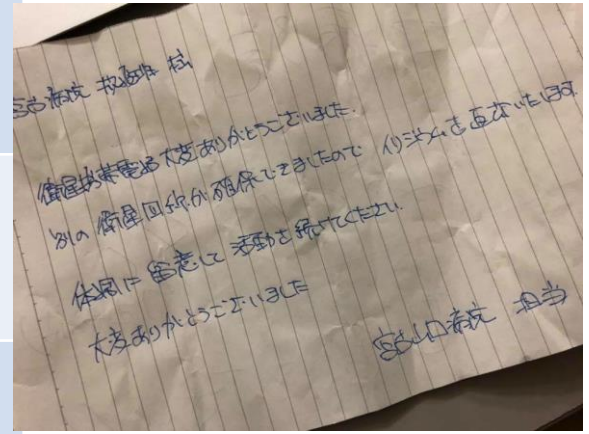 宮古病院 救護班 様
衛星携帯電話大変ありがとうございました.
別の衛星回線が確保できましたので イリジウムを返却いたします
体調に留意して活動を続けてください.
大変ありがとうございました
宮古山口病院 担当